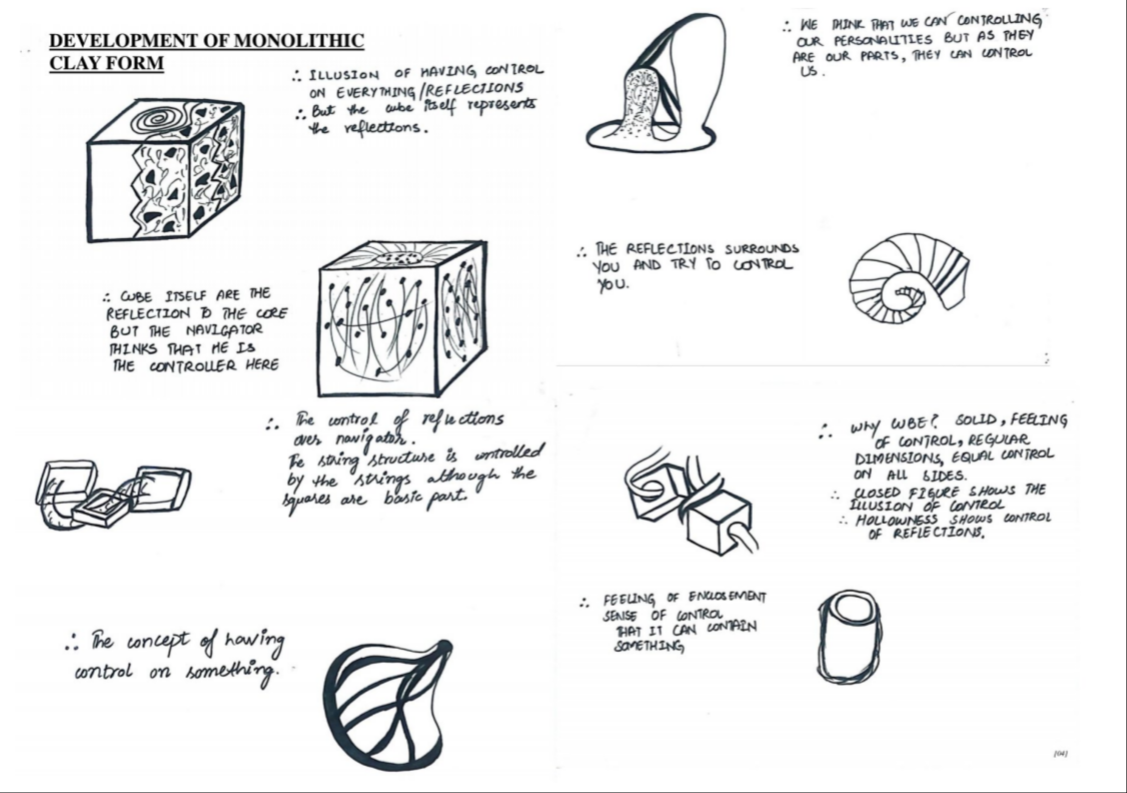 DEVELOPMENT OF MONOLITHIC
CLAY FORM
∴ ILLUSION OF HAVING CONTROL
ON EVERYTHING/REFLECTIONS
∴ But the cube itself represents
the reflections.
∴ CUBE ITSELF ARE THE
REFLECTION TO THE CORE
BUT THE NAVIGATOR
THINKS THAT HE IS
THE CONTROLLER HERE
∴ The control of reflections
over navigator.
The string structure is controlled
by the strings although the
squares are basic part.
∴ The concept of having
control on something.
∴ WE THINK THAT WE CAN CONTROLLING
OUR PERSONALITIES BUT AS THEY
ARE OUR PARTS, THEY CAN CONTROL
US.
∴ THE REFLECTIONS SURROUNDS
YOU AND TRY TO CONTROL
YOU.
∴ WHY CUBE? SOLID, FEELING
OF CONTROL, REGULAR
DIMENSIONS, EQUAL CONTROL
ON ALL SIDES.
∴ CLOSED FIGURE SHOWS THE
ILLUSION OF CONTROL
∴ HOLLOWNESS SHOWS CONTROL
OF REFLECTIONS.
∴ FEELING OF ENCLOSEMENT
SENSE OF CONTROL
THAT IT CAN CONTAIN
SOMETHING
[04]